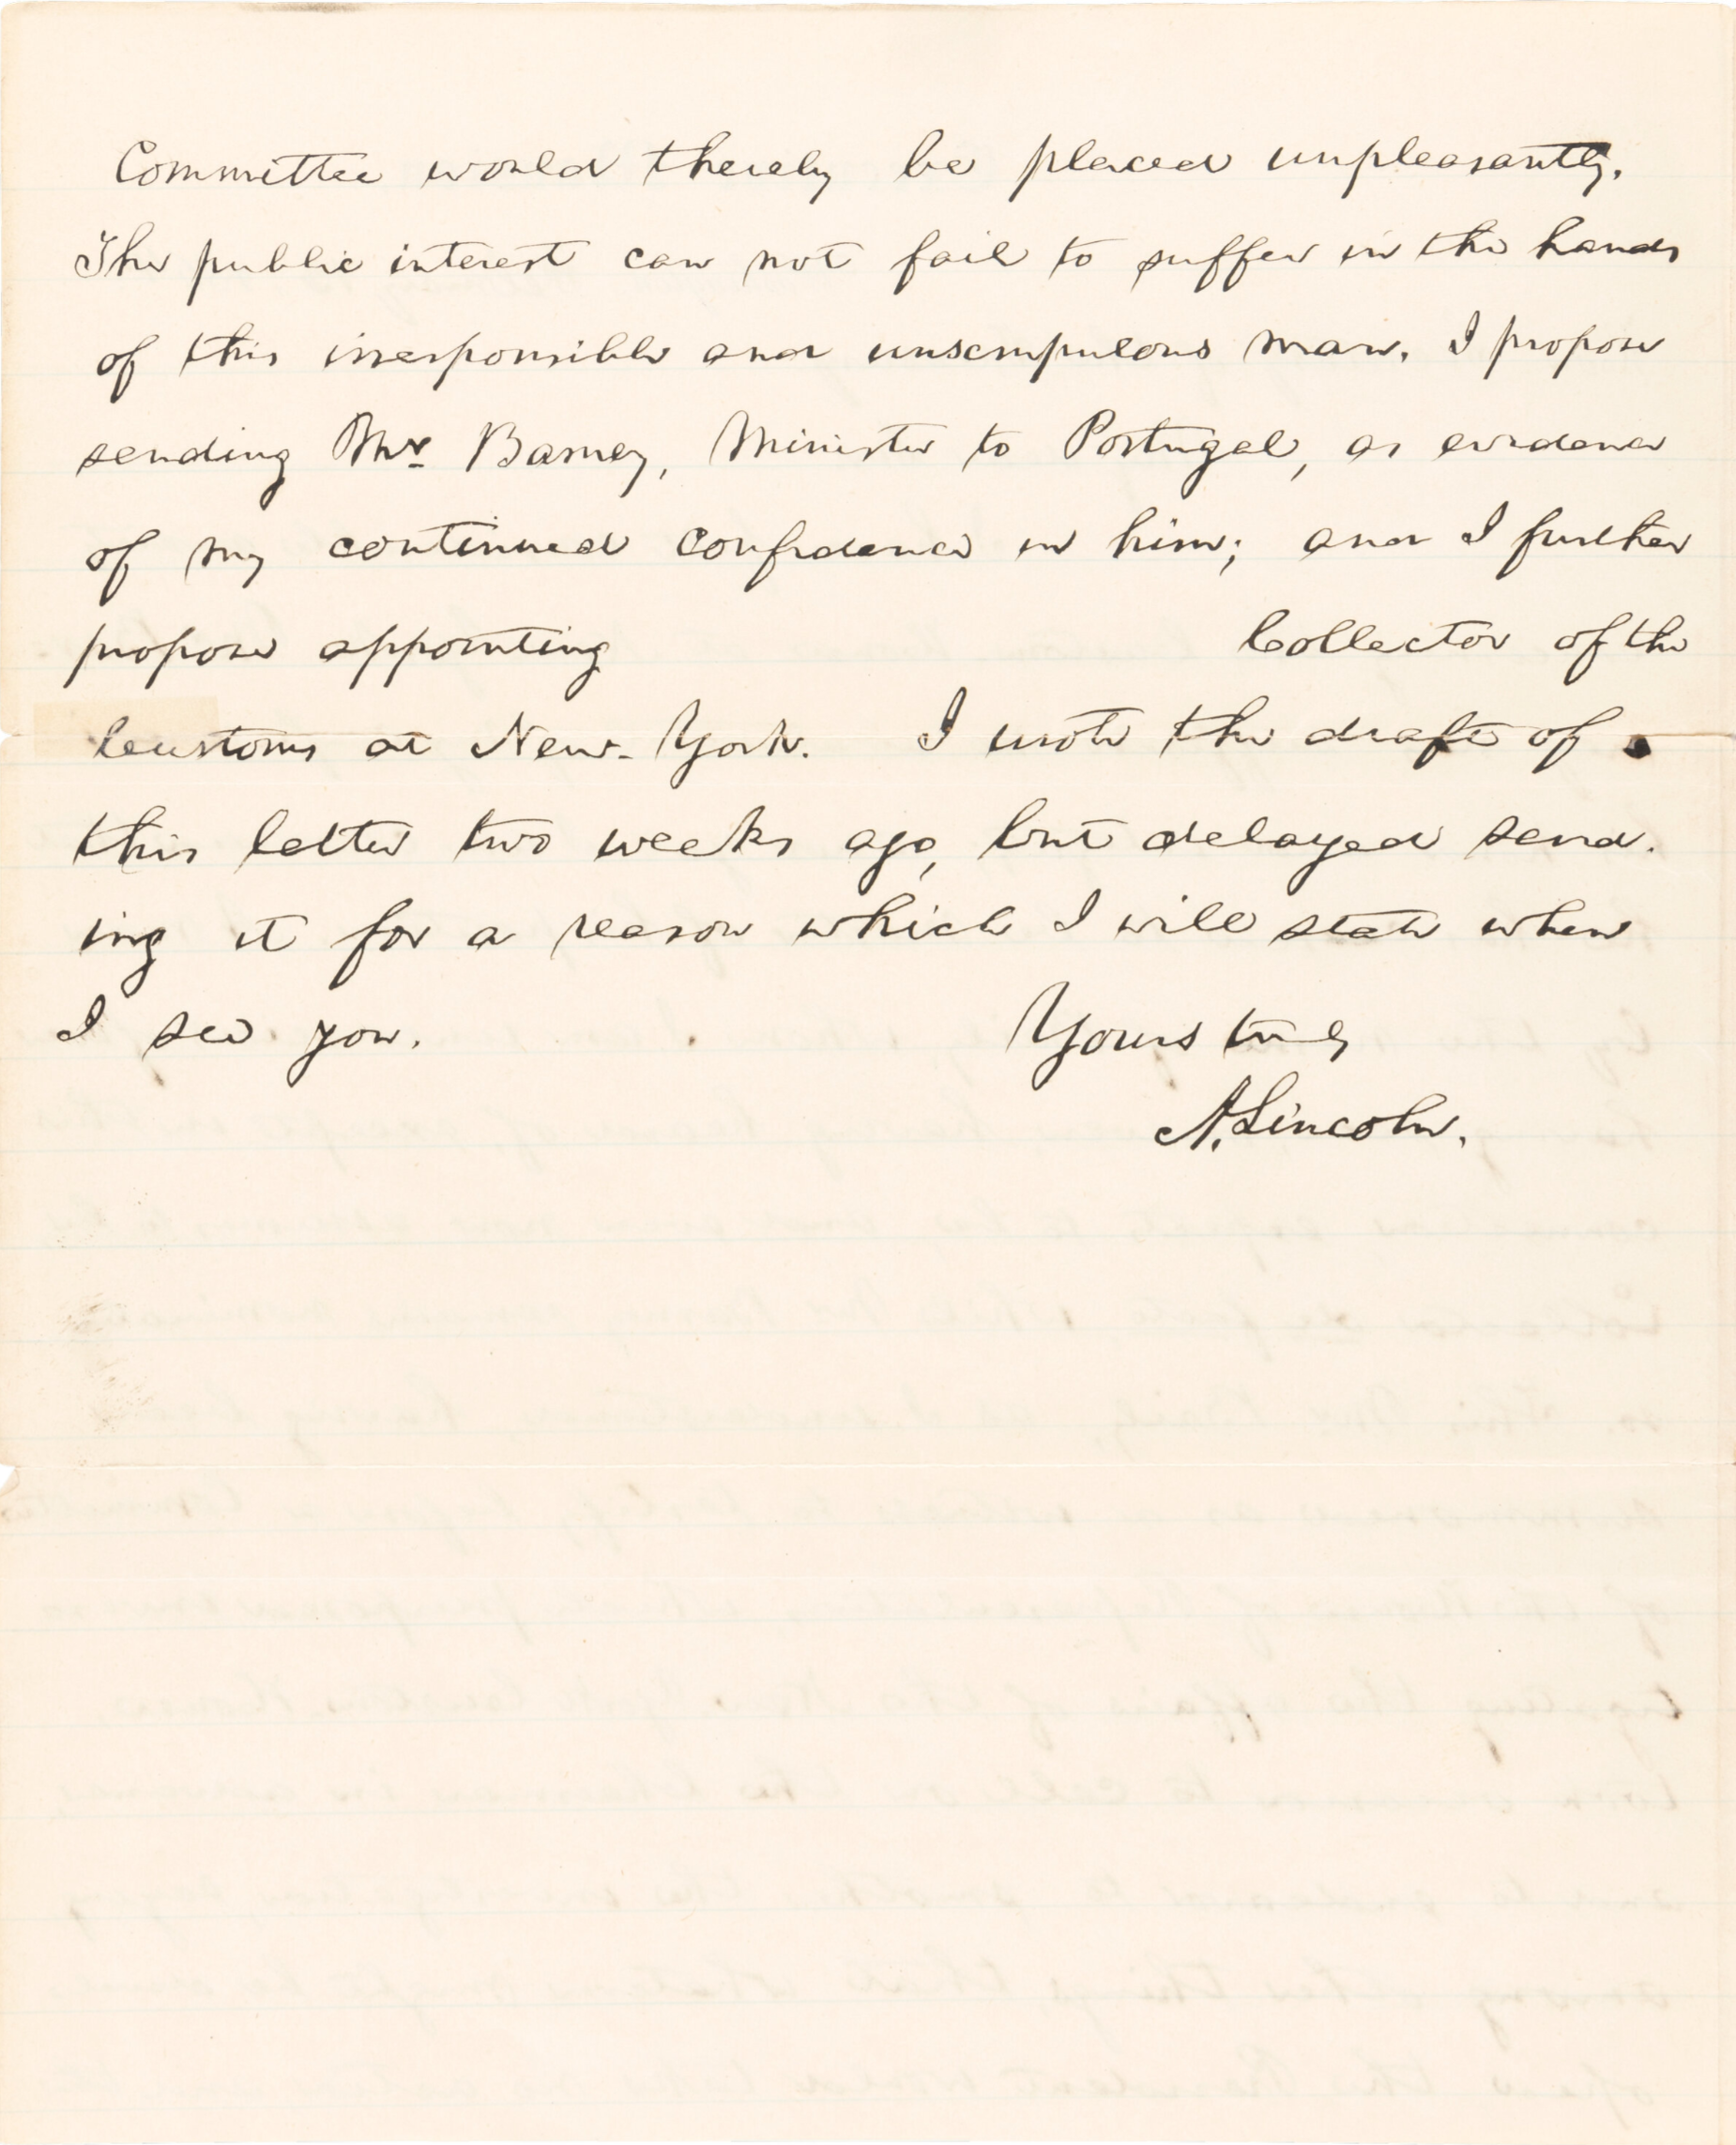 Committee would thereby be placed unpleasantly.
The public interest can not fail to suffer in the hands
of this irresponsible and unscrupulous man. I propose
sending Mr Barney, Minister to Portugal, as evidence
of my continued confidence in him; and I further
propose appointing Collector of the
Customs at New-York. I wrote the draft of
this letter two weeks ago, but delayed send-
ing it for a reason which I will state when
I see you.
Yours truly
A. Lincoln.